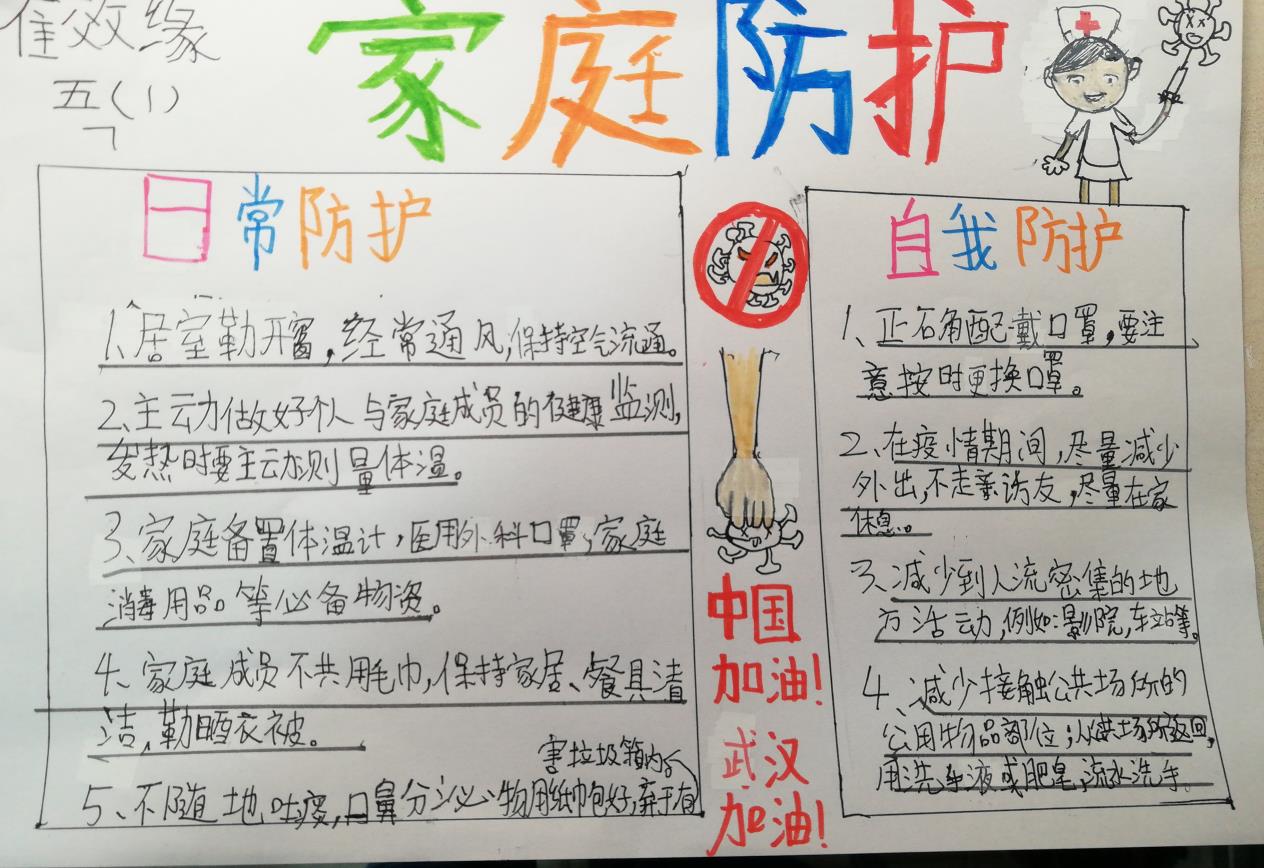 崔效缘
五(1)
家庭防护
日常防护
1、居室勤开窗,经常通风,保持空气流通。
2、主动做好个人与家庭成员的健康监测,
发热时要主动测量体温。
3、家庭备置体温计,医用外科口罩,家庭
消毒用品。等必备物资。
4、家庭成员不共用毛巾,保持家居、餐具清
洁,勤晒衣被。
5、不随地吐痰,口鼻分泌物用纸巾包好,弃于有
害垃圾箱内
中国
加油!
武汉
加油!
自我防护
1、正确配戴口罩,要注
意按时更换口罩。
2、在疫情期间,尽量减少
外出,不走亲访友,尽量在家
休息。
3、减少到人流密集的地
方活动,例如:影院,车站等。
4、减少接触公共场所的
公用物品部位;从公共场所返回,
用洗手液或肥皂,流水洗手。